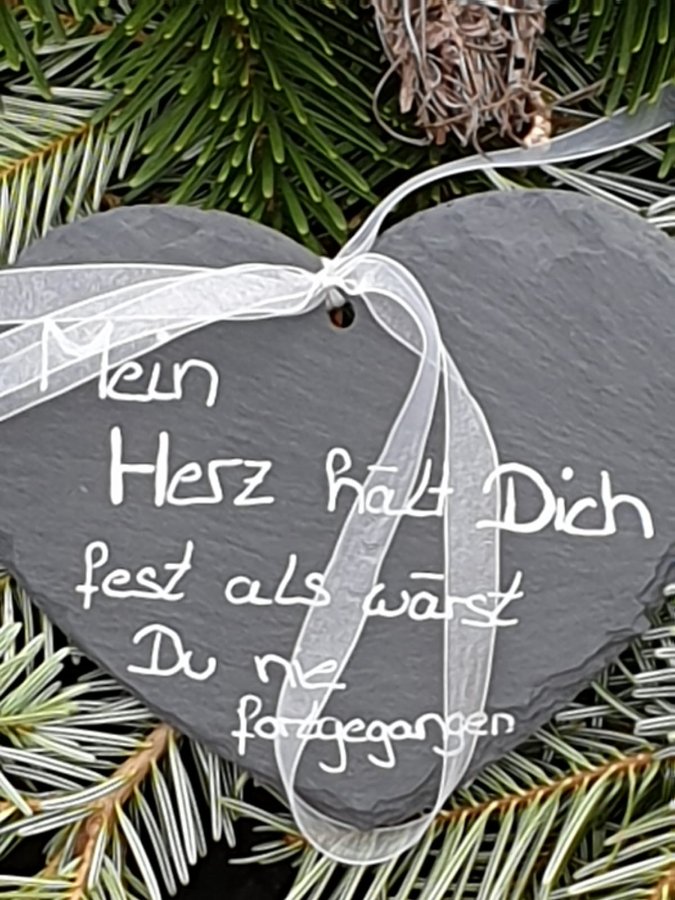 Mein
Herz hält Dich
fest als wärst
Du nie
fortgegangen